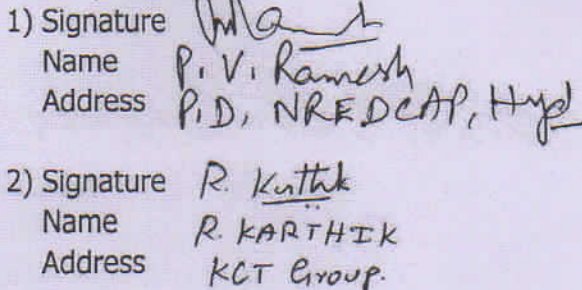 1) Signature
Name P. V. Ramesh
Address P.D, NREDCAP, Hyd
2) Signature R. Karthik
Name R. KARTHIK
Address KCT Group.